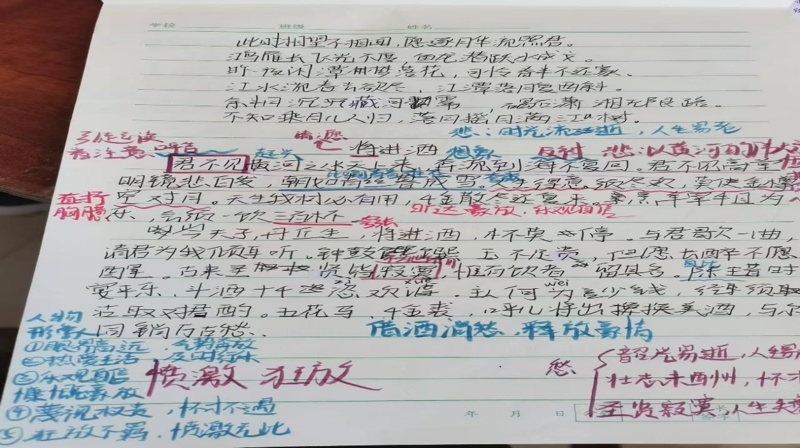 学校 班级 姓名
此时相望不相闻,愿逐月华流照君。
鸿雁长飞光不度,鱼龙潜跃水成文。
昨夜闲潭梦落花,可怜春半不还家。
江水流春去欲尽,江潭落月复西斜。
斜月沉沉藏海雾,碣石潇湘无限路。
不知乘月几人归,落月摇情满江树。
将进酒 想象 悲:时光流逝,人生易老
君不见黄河之水天上来,奔流到海不复回。君不见高堂
明镜悲白发,朝如青丝暮成雪。人生得意须尽欢,莫使金樽
直抒胸臆 空对月。天生我材必有用,千金散尽还复来。烹羊宰牛且为
乐,会须一饮三百杯。 夸张 豪放、乐观自信
岑夫子,丹丘生,将进酒,杯莫停。与君歌一曲,
请君为我倾耳听。钟鼓馔玉不足贵,但愿长醉不愿
醒。古来圣贤皆寂寞,惟有饮者留其名。陈王昔时
宴平乐,斗酒十千恣欢谑。主人何为言少钱,径须沽
取对君酌。五花马,千金裘,呼儿将出换美酒,与尔
同销万古愁。 借酒消愁,释放豪情
人物
形象
②热爱生活 及时行乐
③乐观自信
愤激 狂放
④蔑视权贵,怀才不遇
⑤狂放不羁,愤激至此
愁
韶光易逝,人生易
壮志未酬,怀才
圣贤寂寞,人生失意
年 月 日